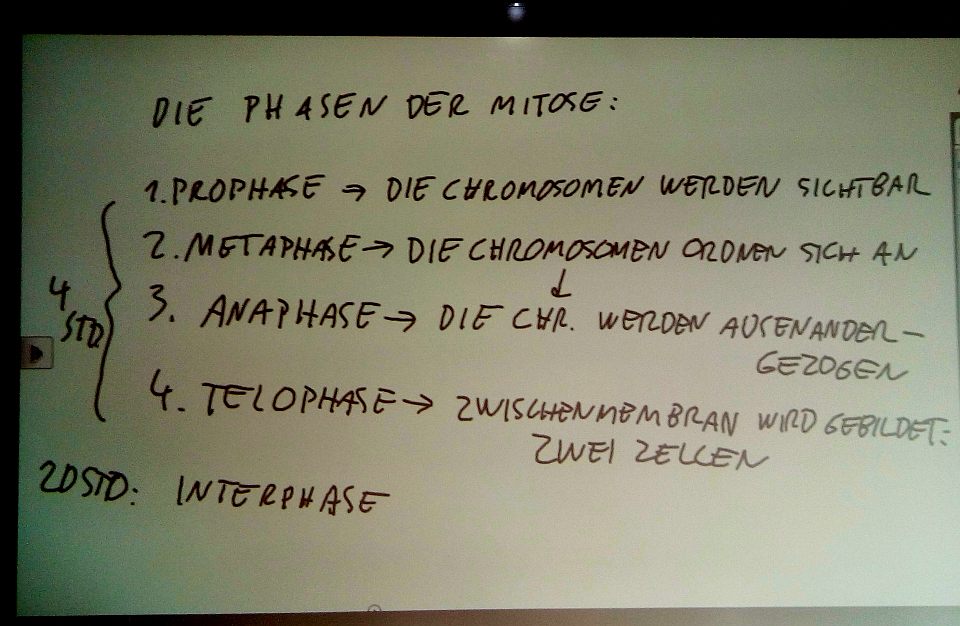 DIE PHASEN DER MITOSE:
1. PROPHASE → DIE CHROMOSOMEN WERDEN SICHTBAR
2. METAPHASE → DIE CHROMOSOMEN ORDNEN SICH AN
↓
3. ANAPHASE → DIE CHR. WERDEN AUSENANDER-
GEZOGEN
4. TELOPHASE → ZWISCHENMEMBRAN WIRD GEBILDET:
ZWEI ZELLEN
4
STD
20STD: INTERPHASE